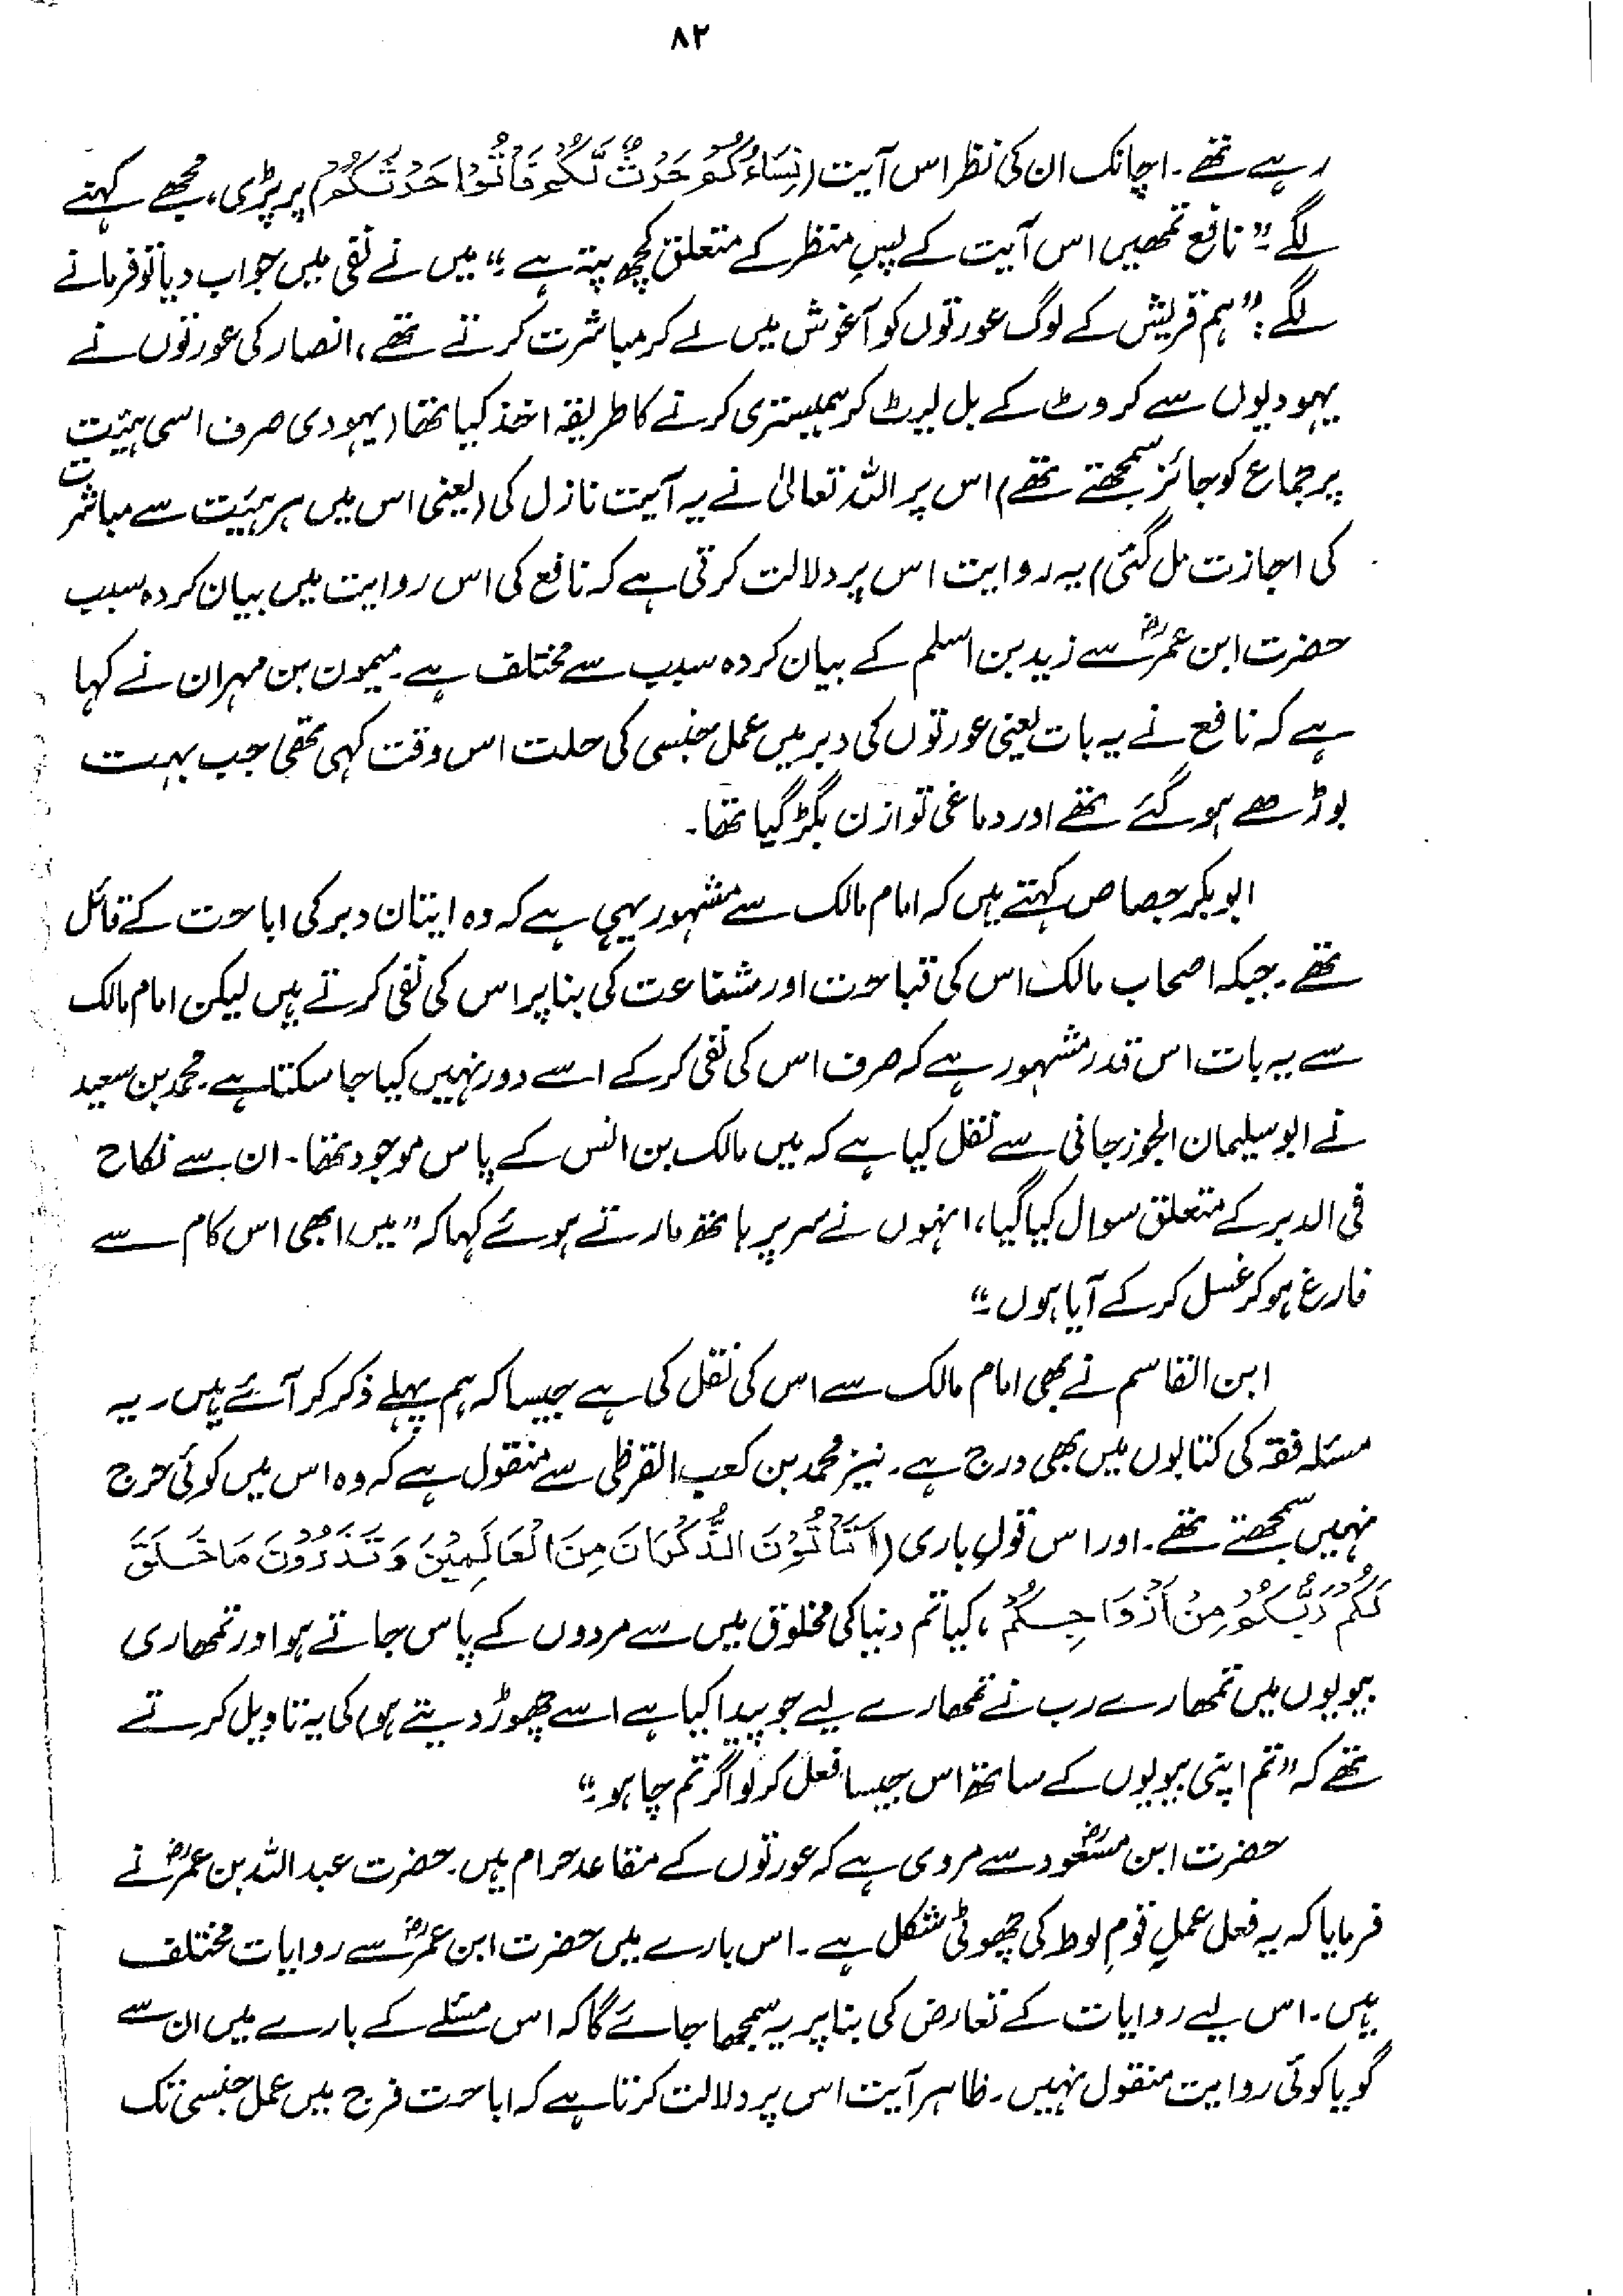 ۸۲
رہے تھے۔ اچانک ان کی نظر اس آیت (نِسَاءُكُمْ حَرْثٌ لَّكُمْ فَأْتُوا حَرْثَكُمْ) پر پڑی، مجھے کہتے
لگے: ”نافع تمھیں اس آیت کے پسِ منظر کے متعلق کچھ پتہ ہے؟“ میں نے نفی میں جواب دیا تو فرمانے
لگے: ”ہم قریش کے لوگ عورتوں کو آغوش میں لے کر مباشرت کرتے تھے، انصار کی عورتوں نے
یہودیوں سے کروٹ کے بل لیٹ کر ہمبستری کرنے کا طریقہ اخذ کیا تھا (یہودی صرف اسی ہیئت
پر جماع کو جائز سمجھتے تھے) اس پر اللہ تعالیٰ نے یہ آیت نازل کی (یعنی اس میں ہر ہیئت سے مباشرت
کی اجازت مل گئی) یہ روایت اس پر دلالت کرتی ہے کہ نافع کی اس روایت میں بیان کردہ سبب
حضرت ابن عمرؓ سے زید بن اسلم کے بیان کردہ سبب سے مختلف ہے۔ میمون بن مہران نے کہا
ہے کہ نافع نے یہ بات یعنی عورتوں کی دبر میں عمل جنسی کی حلت اس وقت کہی تھی جب بہت
بوڑھے ہو گئے تھے اور دماغی توازن بگڑ گیا تھا۔
ابوبکر جصاص کہتے ہیں کہ امام مالک سے مشہور یہی ہے کہ وہ ایتان دبر کی اباحت کے قائل
تھے۔ جبکہ اصحاب مالک اس کی قباحت اور شناعت کی بنا پر اس کی نفی کرتے ہیں لیکن امام مالک
سے یہ بات اس قدر مشہور ہے کہ صرف اس کی نفی کر کے اسے دور نہیں کیا جا سکتا ہے۔ محمد بن سعید
نے ابو سلیمان الجوزجانی سے نقل کیا ہے کہ میں مالک بن انس کے پاس موجود تھا۔ ان سے نکاح
فی الدبر کے متعلق سوال کیا گیا، انہوں نے سر پر ہاتھ مارتے ہوئے کہا کہ ”میں ابھی اس کام سے
فارغ ہو کر غسل کر کے آیا ہوں۔“
ابن القاسم نے بھی امام مالک سے اس کی نقل کی ہے جیسا کہ ہم پہلے ذکر کر آئے ہیں۔ یہ
مسئلہ فقہ کی کتابوں میں بھی درج ہے۔ نیز محمد بن کعب القرظی سے منقول ہے کہ وہ اس میں کوئی حرج
نہیں سمجھتے تھے۔ اور اس قولِ باری (أَتَأْتُوْنَ الذُّكْرَانَ مِنَ الْعَالَمِيْنَ وَتَذَرُوْنَ مَا خَلَقَ
لَكُمْ رَبُّكُمْ مِنْ أَزْوَاجِكُمْ، کیا تم دنیا کی مخلوق میں سے مردوں کے پاس جاتے ہو اور تمھاری
بیویوں میں تمھارے رب نے تمھارے لیے جو پیدا کیا ہے اسے چھوڑ دیتے ہو) کی یہ تاویل کرتے
تھے کہ ”تم اپنی بیویوں کے ساتھ اس جیسا فعل کر لو اگر تم چاہو۔“
حضرت ابن مسعودؓ سے مروی ہے کہ عورتوں کے مقاعد حرام ہیں۔ حضرت عبداللہ بن عمرؓ نے
فرمایا کہ یہ فعل عملِ قومِ لوط کی چھوٹی شکل ہے۔ اس بارے میں حضرت ابن عمرؓ سے روایات مختلف
ہیں۔ اس لیے روایات کے تعارض کی بنا پر یہ سمجھا جائے گا کہ اس مسئلے کے بارے میں ان سے
گویا کوئی روایت منقول نہیں۔ ظاہر آیت اس پر دلالت کرتا ہے کہ اباحت فرج میں عمل جنسی تک